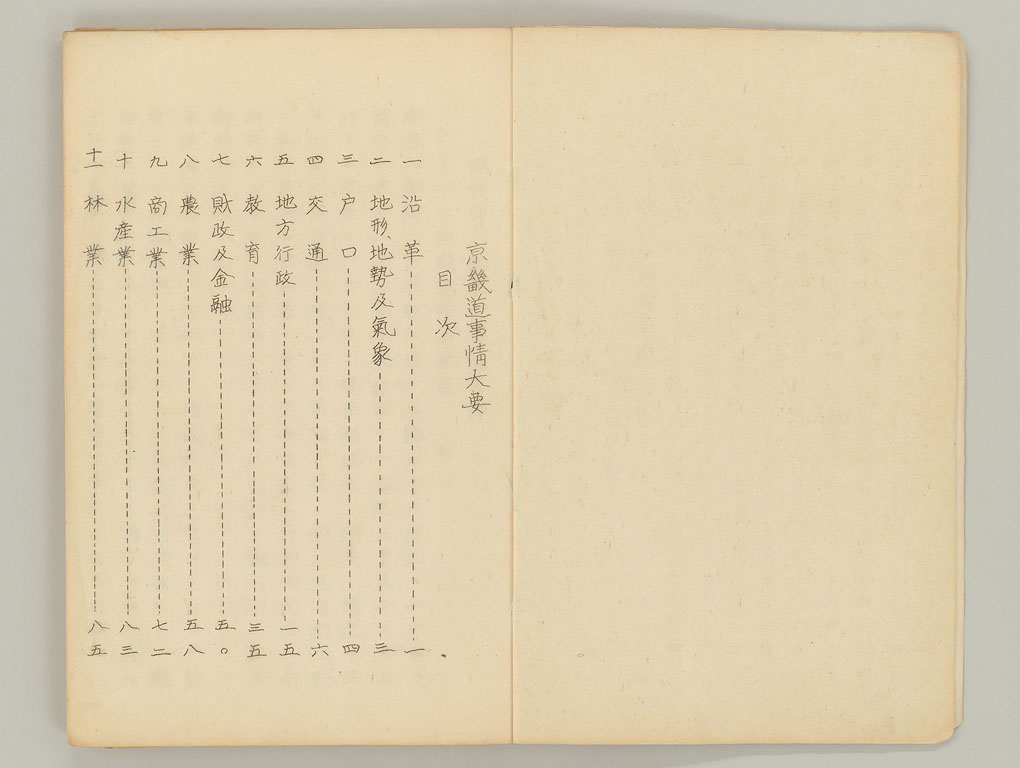 京畿道事情大要
目次
一 沿革 一
二 地形、地勢及氣象 三
三 户口 四
四 交通 六
五 地方行政 一五
六 敎育 三五
七 財政及金融 五〇
八 農業 五八
九 商工業 七二
十 水産業 八三
十一 林業 八五